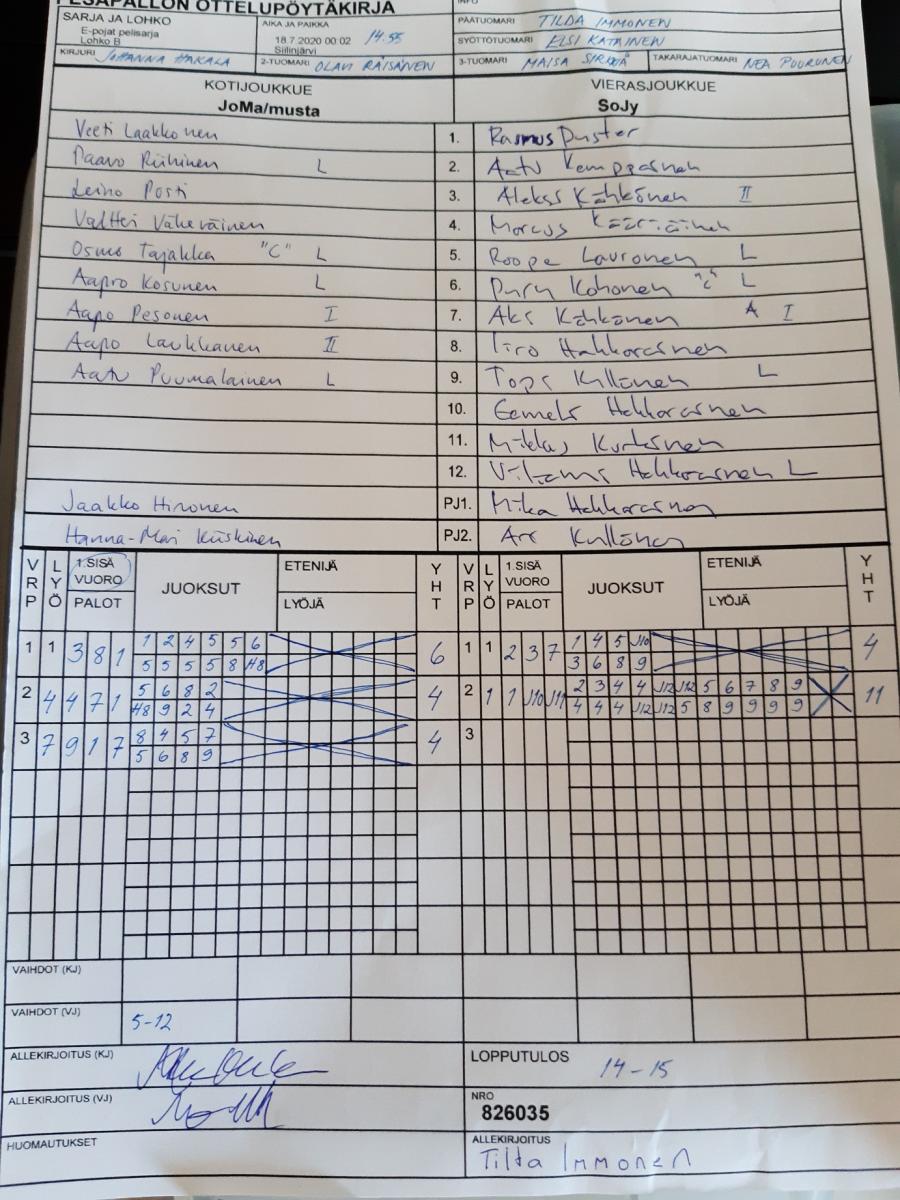 PESÄPALLON OTTELUPÖYTÄKIRJA
INFO
SARJA JA LOHKO
E-pojat pelisarja
Lohko B
AIKA JA PAIKKA
18.7.2020 00:02 14:55
Siilinjärvi
PÄÄTUOMARI TILDA IMMONEN
SYÖTTÖTUOMARI ELSI KATAINEN
KIRJURI JOHANNA HAKALA
2-TUOMARI OLAVI RÄISÄNEN
3-TUOMARI MAISA
TAKARAJATUOMARI NEA PUURUNEN
KOTIJOUKKUE
JoMa/musta
VIERASJOUKKUE
SoJy
Veeti Laakkonen 1. Rasmus Puster
Paavo Riihinen L 2. Aatu Kemppainen
Leino Posti 3. Aleksi Kähkönen II
Valtteri Väheväinen 4. Marcus Kääriäinen
Osmo Tajakka "C" L 5. Roope Lauronen L
Aapro Kosunen L 6. Kohonen "C" L
Aapo Pesonen I 7. Aks Kähkönen A I
Aapo Laukkanen II 8. Iiro Hakkarainen
Aatu Puumalainen L 9. Topi Kyllönen L
10. Eemeli Hakkarainen
11. Miklas Kurkinen
12. Viljami Hakkarainen L
Jaakko Hironen PJ1. Mika Hakkarainen
Hanna-Mari Kiiskinen PJ2. Kyllönen
VRP LYÖ 1.SISÄ VUORO PALOT JUOKSUT ETENIJÄ LYÖJÄ YHT VRP LYÖ 1.SISÄ VUORO PALOT JUOKSUT ETENIJÄ LYÖJÄ YHT
1 1 3 8 1 1 2 4 5 5 6 6 1 1 2 3 7 1 4 5 J10 4
5 5 5 5 8 H8 3 6 8 9
2 4 4 7 1 5 6 8 2 4 2 1 1 J10 J11 2 3 4 4 J12 J12 5 6 7 8 9 11
H8 9 2 4 4 4 4 J12 J12 5 8 9 9 9 9
3 7 9 1 7 8 4 5 7 4 3
5 6 8 9
VAIHDOT (KJ)
VAIHDOT (VJ) 5-12
ALLEKIRJOITUS (KJ)
LOPPUTULOS 14-15
ALLEKIRJOITUS (VJ)
NRO
826035
HUOMAUTUKSET
ALLEKIRJOITUS
Tilda Immonen